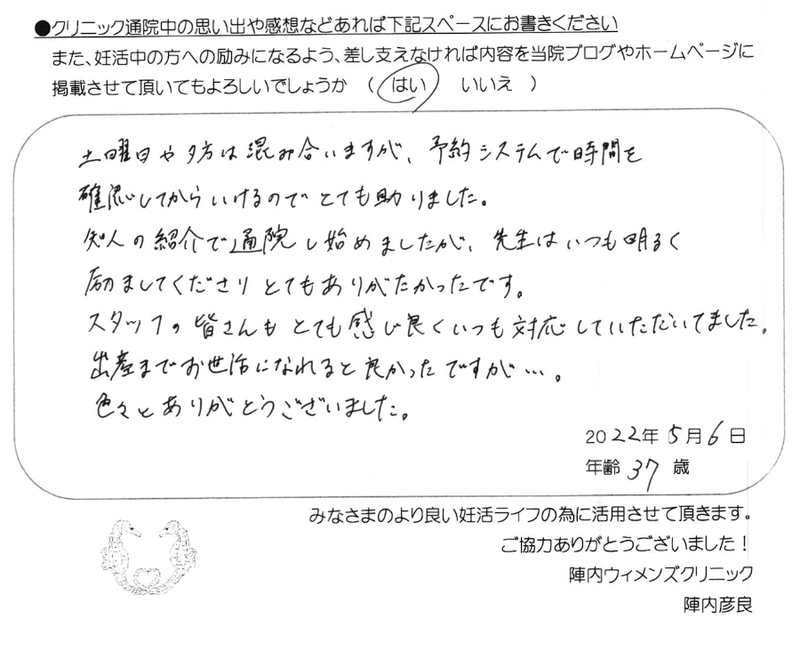 ●クリニック通院中の思い出や感想などあれば下記スペースにお書きください
また、妊活中の方への励みになるよう、差し支えなければ内容を当院ブログやホームページに
掲載させて頂いてもよろしいでしょうか （ はい いいえ ）
土曜日や夕方は混み合いますが、予約システムで時間を
確認してからいけるのでとても助りました。
知人の紹介で通院し始めましたが、先生はいつも明るく
励ましてくださりとてもありがたかったです。
スタッフの皆さんもとても感じ良くいつも対応していただいてました。
出産までお世話になれると良かったですが…。
色々とありがとうございました。
2022年5月6日
年齢 37 歳
みなさまのより良い妊活ライフの為に活用させて頂きます。
ご協力ありがとうございました！
陣内ウィメンズクリニック
陣内彦良